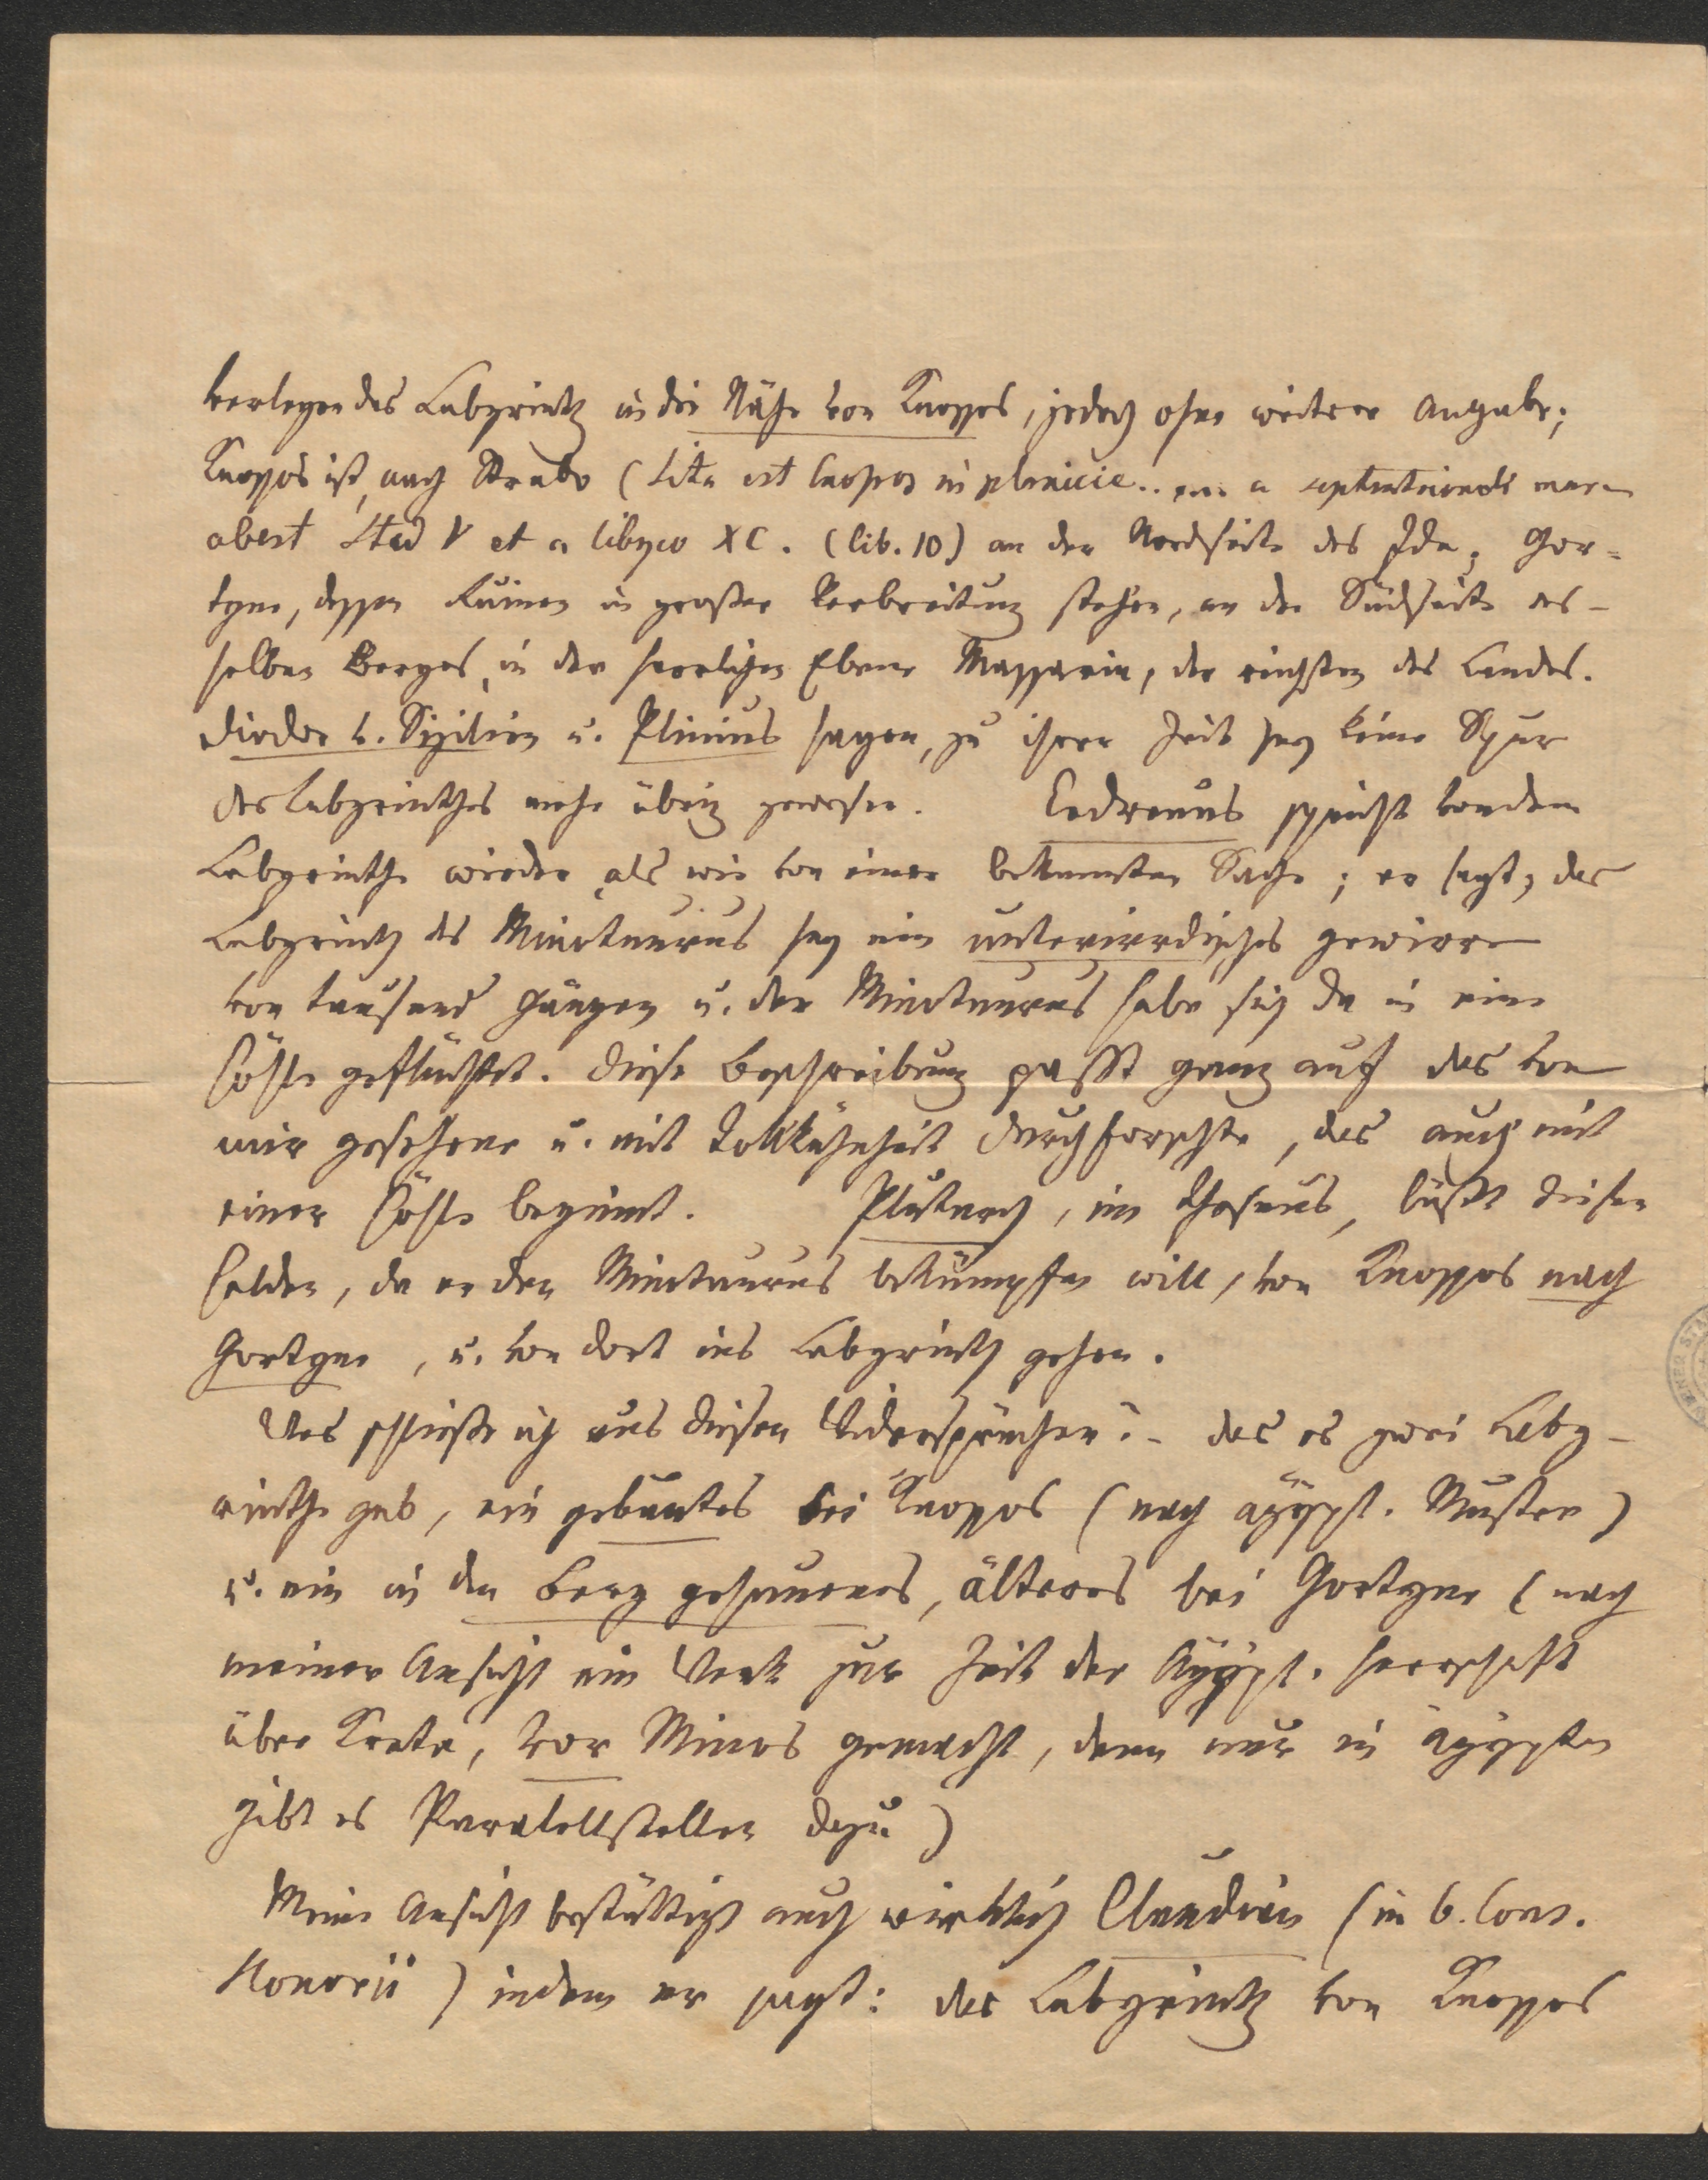 verlegen das Labyrinth in die Nähe von Knossos, jedoch ohne weitere Angabe;
Knossos ist, nach Strabo (Sita est Cnosos in planicie .. a septentrionali mare
abest Stad V et a libyco XC. (lib. 10) an der Nordseite des Ida; Gor=
tyne, dessen Ruinen in großer Verbreitung stehen, an der Südseite des-
selben Berges, in der herrlichen Ebene Massaria, der reichsten des Landes.
Diodor v. Sizilien u. Plinius sagen, zu ihrer Zeit sey keine Spur
des Labyrinthes mehr übrig gewesen. Cedrenus spricht von dem
Labyrinthe wieder als wie von einer bekannten Sache; er sagt, das
Labyrinth des Minotaurus sey ein unterirrdisches Gewirre
von tausend Gängen u. der Minotaurus habe sich da in eine
Höhle geflüchtet. Diese Beschreibung passt ganz auf das von
mir gesehene u. mit Tollkühnheit durchforschte, das auch mit
einer Höhle beginnt. Plutarch, im Theseus, läßt diesen
Helden, da er den Minotaurus bekämpfen will, von Knossos nach
Gortyne, u. von dort ins Labyrinth gehen.
Was schließe ich aus diesen Widersprüchen? - das es zwei Laby-
rinthe gab, ein gebautes bei Knossos (nach ägypt. Muster)
u. ein in den Berg gehauenes, älteres bei Gortyne (nach
meiner Ansicht ein Werk zur Zeit der Ägypt. Herrschaft
über Kreta, vor Minos gemacht, denn nur in Ägypten
gibt es Parallellstellen dazu)
Meine Ansicht bestättigt auch wirklich Claudian (in 6. Cons.
Honorii) indem er sagt: das Labyrinth von Knossos